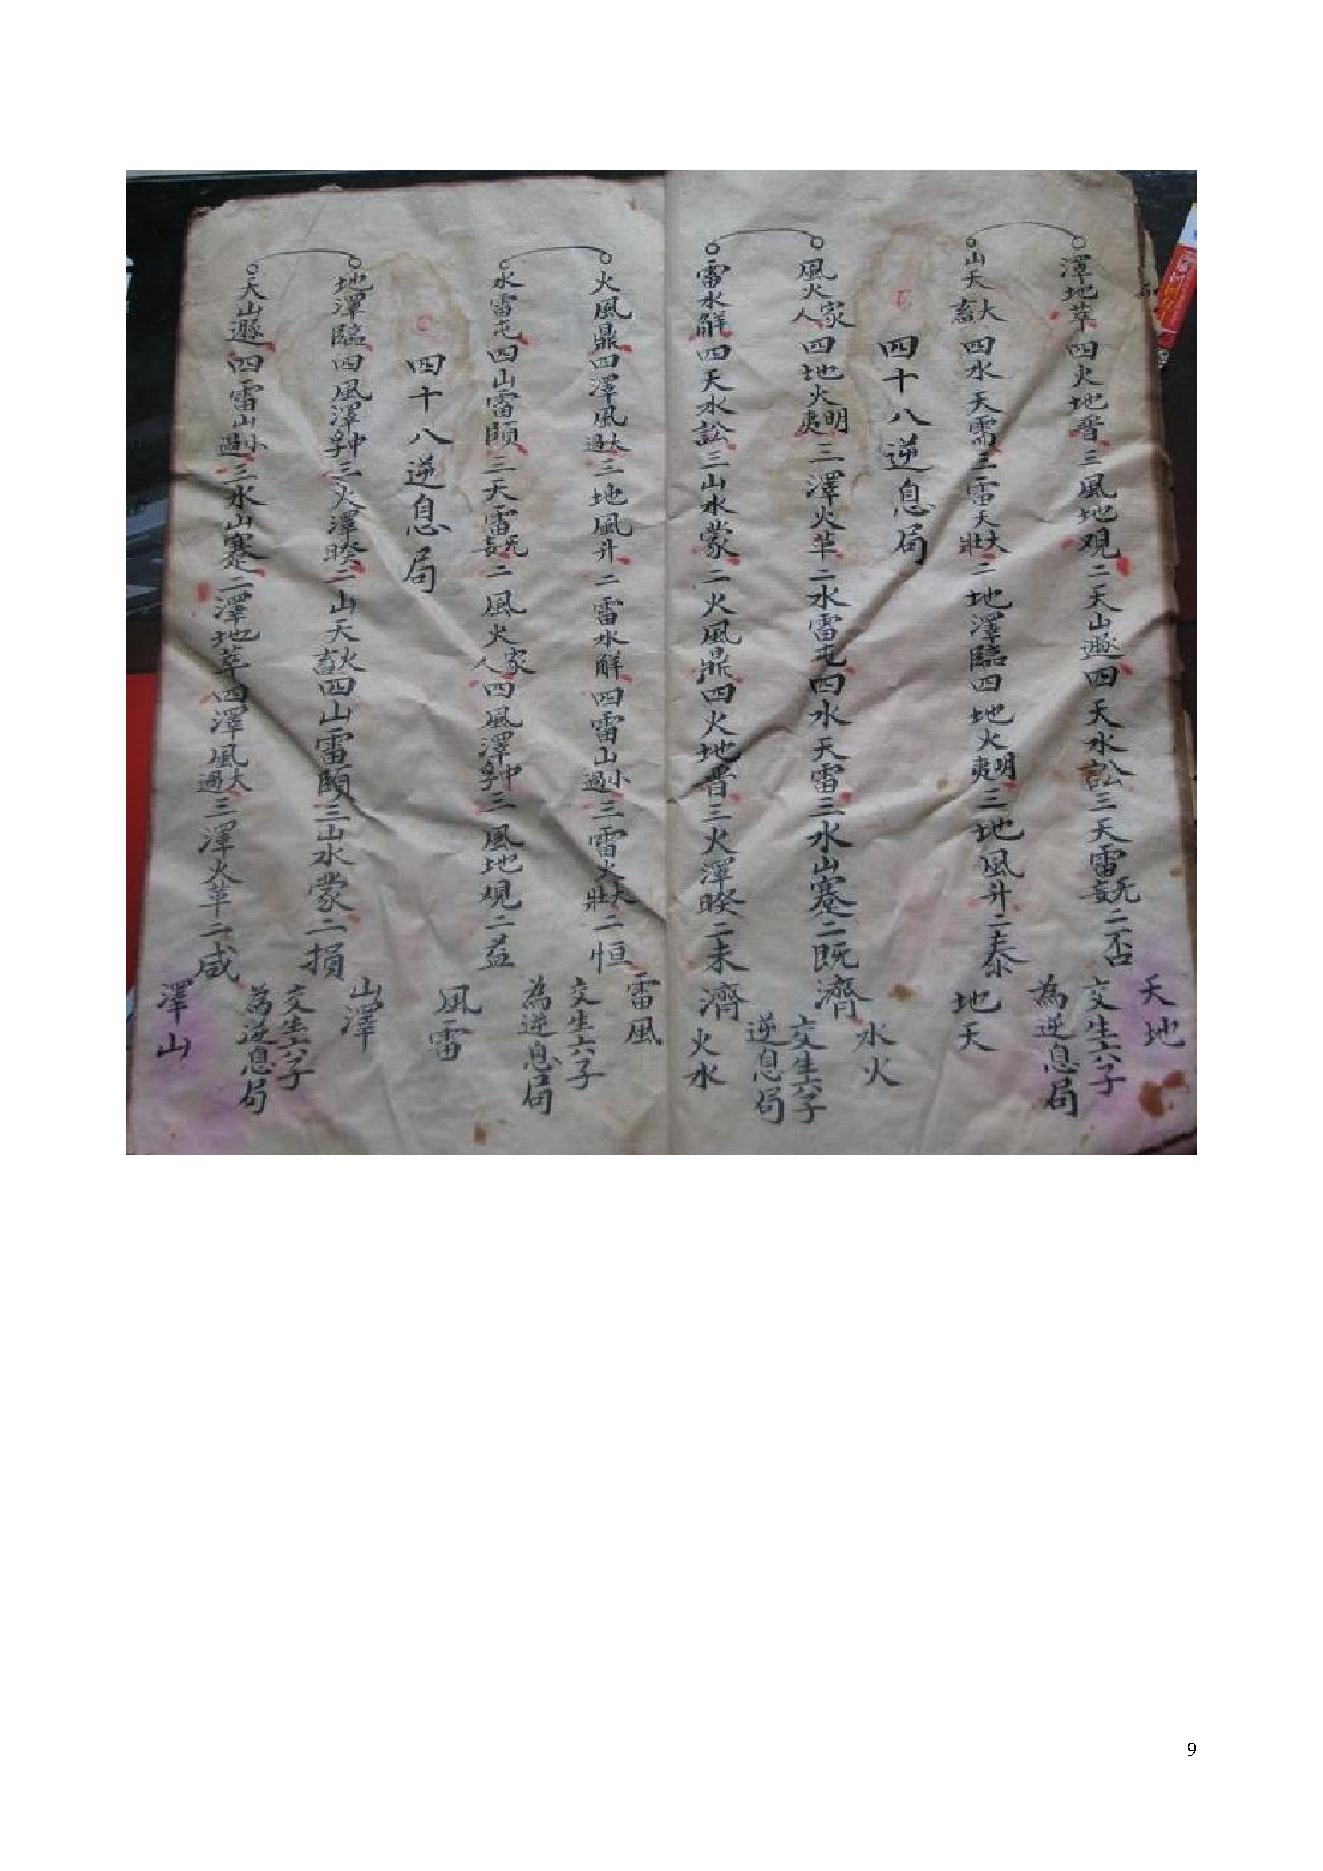 澤地萃四火地晋三風地观二天山遯四天水訟三天雷无妄二否
天地
交生六子
為逆息局
山天大畜四水天需三雷天大壯二地澤臨四地火明夷三地風升二泰
地天
四十八逆息局
風火家人四地火明夷三澤火革二水雷屯四水天雷三水山蹇二既濟
水火
交生六子
逆息局
雷水解四天水訟三山水蒙二火風鼎四火地晋三火澤睽二未濟
火水
火風鼎四澤風大過三地風升二雷水解四雷山小過三雷火大壯二恒
雷風
交生六子
為逆息局
水雷屯四山雷頤三天雷无妄二風火家人四風澤中孚三風地观二益
風雷
四十八逆息局
地澤臨四風澤中孚三火澤睽二山天大畜四山雷頤三山水蒙二損
山澤
交生六子
為逆息局
天山遯四雷山小過三水山蹇二澤地萃四澤風大過三澤火革二咸
澤山
9